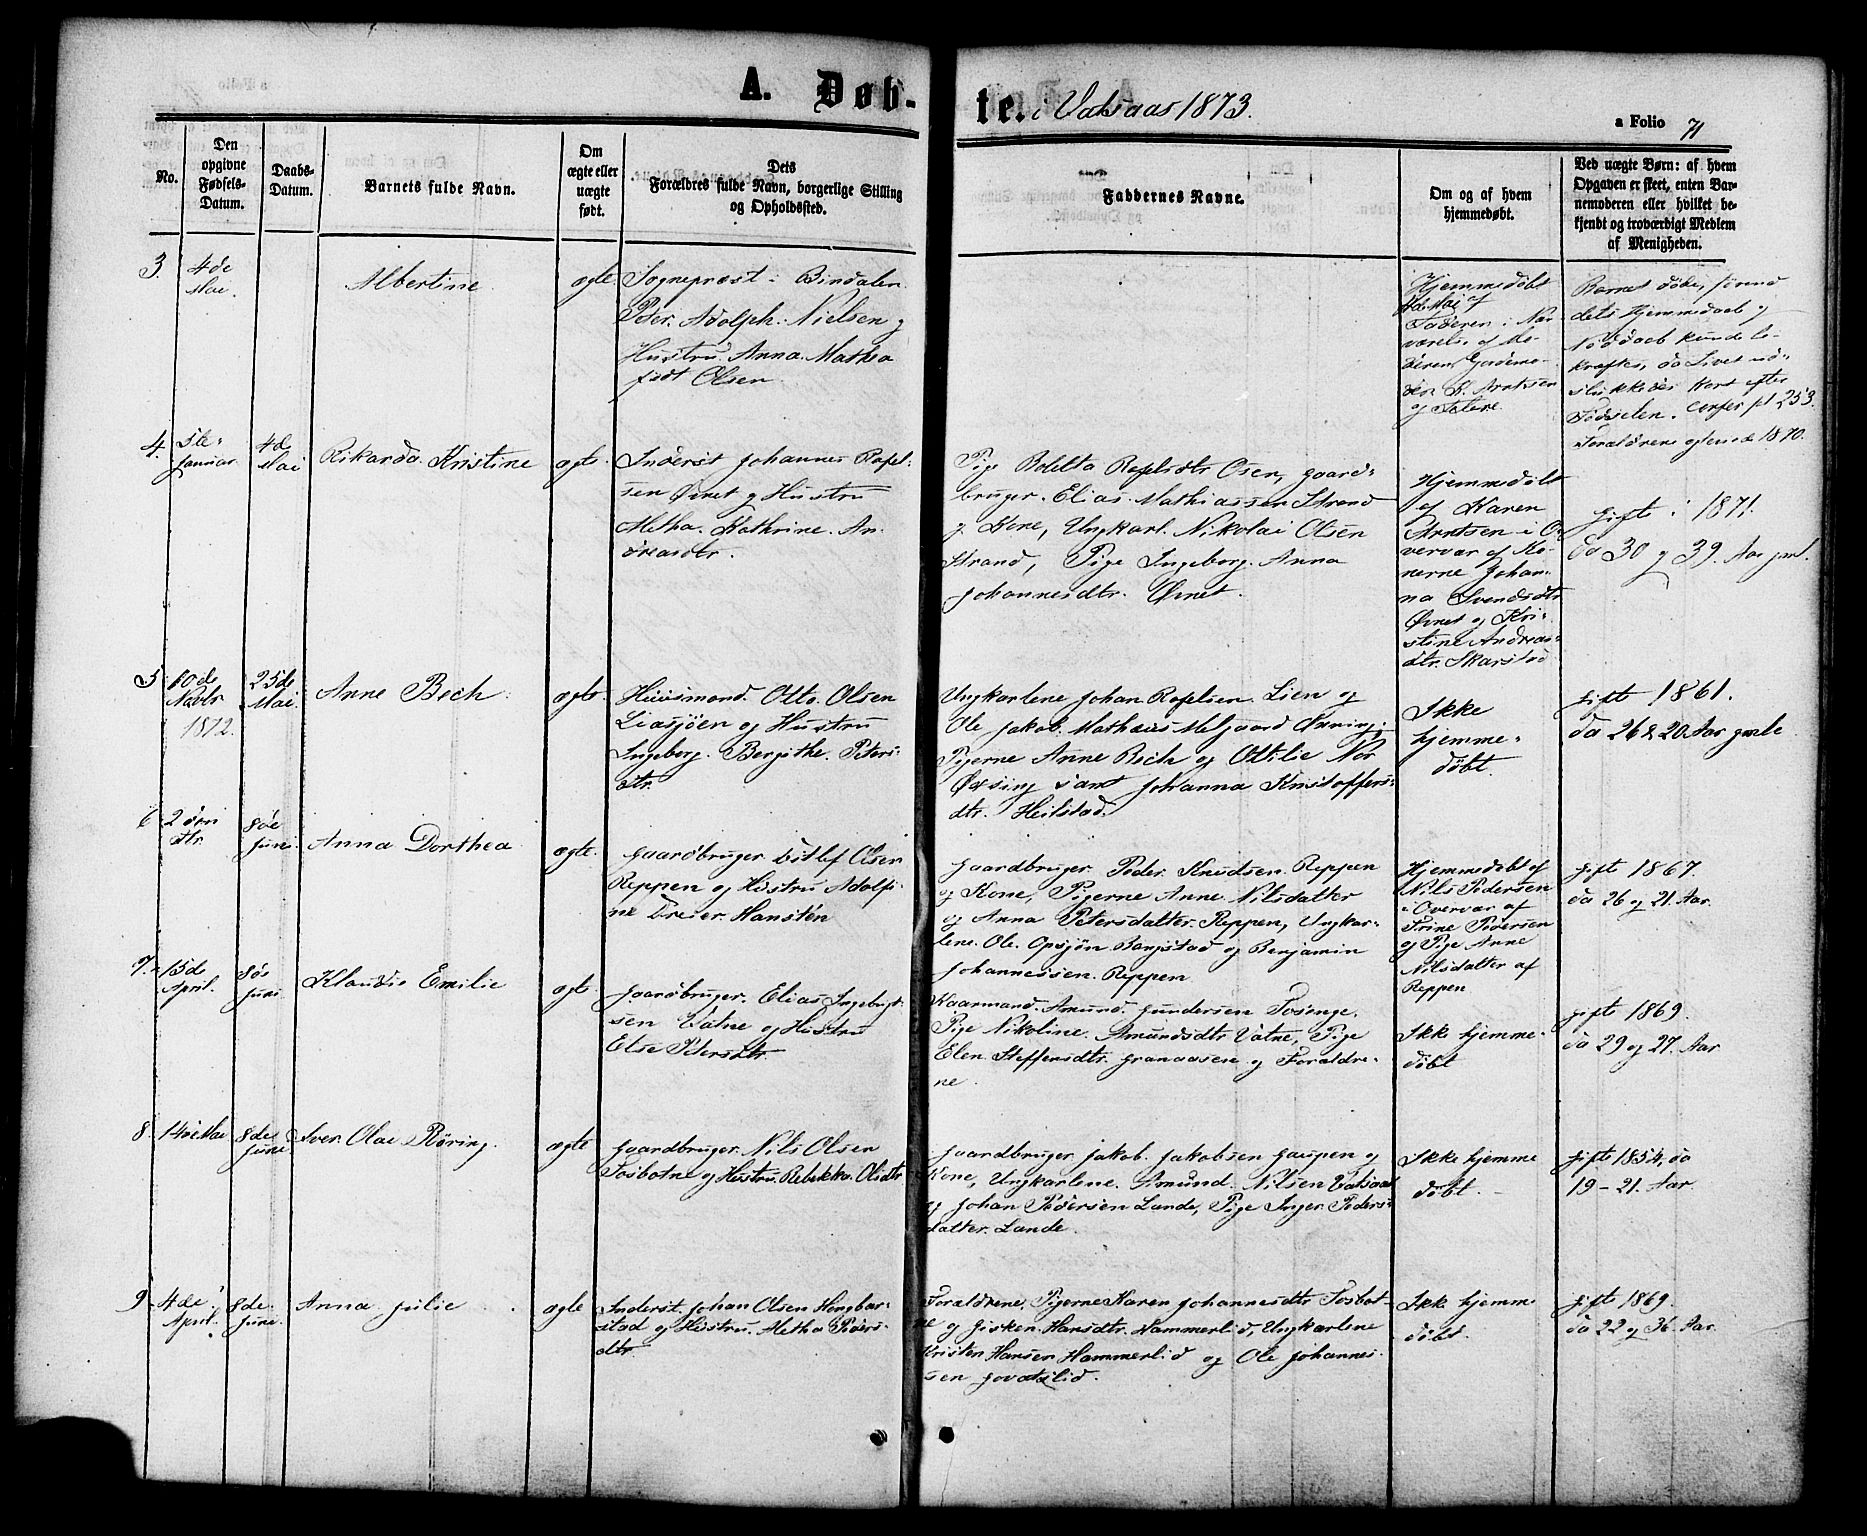 A. Døb-
te. i Vatsaas 1873.
a Folio 71
No.
Den
opgivne
Fødsels-
Datum.
Daabs-
Datum.
Barnets fulde Navn.
Om
ægte eller
uægte
født.
Dets
Forældres fulde Navn, borgerlige Stilling
og Opholdssted.
Faddernes Navne.
Om og af hvem
hjemmedøbt.
Ved uægte Børn: af hvem
Opgaven er skeet, enten Bar-
nemoderen eller hvilket be-
kjendt og troværdigt Medlem
af Menigheden.
3.
4de
Mai.
Albertine
ægte
Sognepræst i Bindalen
Peter Adolph Nielsen og
Hustru Anna Mathea
født Olsen
Hjemmedøbt
4de Mai af
Faderen i Nær-
værelse af Mo-
deren, Gjordemo-
der Arntsen
og Flere.
Barnet døde, førend
dets Hjemmedaab
Nøddaab kunde be-
kræftes, da Livet ud-
slukkedes kort efter
Fødselen. 253.
Forældrene 1870.
4.
5te
Januar
4de
Mai
Rikarda Kristine
ægte
Inderst Johannes Rafel-
sen Øvret og Hustru
Metha Kathrine An-
dreasdtr.
Pige Boletta Rafelsdtr Osen, Gaard-
bruger Elias Mathiassen Strand
og Kone, Ungkarl Nikolai Olsen
Strand, Pige Ingeborg Anna
Johannesdtr. Øvret.
Hjemmedøbt
af Karen
Arntsen i O-
vervær af Ko-
nerne Johan-
na Svendsdtr
Øvret og Kri-
stine Andreas-
dtr. Skarstad
gift i 1871.
da 30 og 39 Aar gml.
5
10de
Novbr
1872.
25de
Mai
Anne Bech
ægte
Huusmand Otto Olsen
Liasjøen og Hustru
Ingeborg Bergithe Peters-
dtr.
Ungkarlene Johan Rafelsen Lien og
Ole Jakob Mathæus Melgaard Øxning,
Pigerne Anne Bech og Ottilie Nor
Øxsing samt Johanna Kristoffers-
dtr. Heilstad.
Ikke
hjemme-
døbt.
gift 1861.
da 26 & 20 Aar gamle
6
2den
8de
Juni
Anna Dorthea
ægte.
Gaardbruger Ditlef Olsen
Reppen og Hustru Adolfi-
ne Dreier Hanstén
Gaardbruger Peder Knudsen Reppen
og Kone, Pigerne Anne Nilsdatter
og Anna Petersdatter Reppen, Ungkar-
lene Ole Opsjøn Bangstad og Benjamin
Johannessen Reppen
Hjemmedøbt af
Nils Pedersen
i Overvær af
Trine Pedersen
og Pige Anne
Nilsdatter af
Reppen
gift 1867.
da 26 og 21. Aar
7.
15de
April.
8de
Juni
Klaudie Emilie
ægte
Gaardbruger Elias Ingebrigt-
sen Vatne og Hustru
Else Petersdtr.
Kaarmand Amund Gundersen Tosenge,
Pige Nikoline Amundsdtr Vatne, Pige
Elen Steffensdtr. Granaasen og Forældre-
ne.
Ikke hjemme-
døbt
gift 1869.
da 29 og 27. Aar
8.
14de Mai
8de
Juni
Iver Olai Røring.
ægte
Gaardbruger Nils Olsen
Tosbotne og Hustru Rebekka Olsdtr
Gaardbruger Jakob Jakobsen Gaupen og
Kone, Ungkarlene Amund Nilsen Vatsaas
og Johan Pedersen Lande, Pige Inger Peders-
datter Lande.
Ikke hjemme
døbt.
gift 1854, da
19 - 21. Aar
9.
4de
April.
8de
Juni.
Anna Julie
ægte
Inderst Johan Olsen Høngbar-
stad og Hustru Metha Peders-
dtr.
Forældrene, Pigerne Karen Johannesdtr Tosbot-
ne og Gisken Hansdtr. Hammerlid, Ungkarlene
Kristen Hansen Hammerlid og Ole Johannes-
sen Govatslid.
Ikke hjemme
døbt.
gift 1869.
da 22 og 36. Aar.